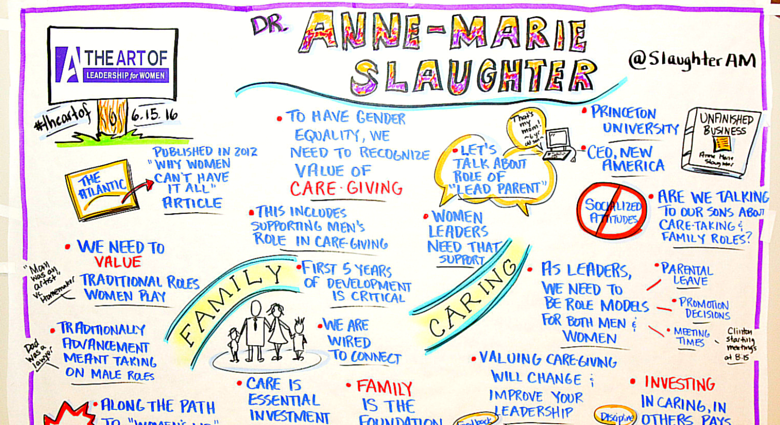 DR. ANNE-MARIE
SLAUGHTER
@SlaughterAM
A THE ART OF
LEADERSHIP for WOMEN
#theartof
6.15.16
THE
ATLANTIC
PUBLISHED IN 2012
"WHY WOMEN
CAN'T HAVE
IT ALL"
ARTICLE
• TO HAVE GENDER
EQUALITY, WE
NEED TO RECOGNIZE
VALUE OF
CARE-GIVING
• THIS INCLUDES
SUPPORTING MEN'S
ROLE IN CARE-GIVING
That's
my
mom!
• LET'S
TALK ABOUT
ROLE OF
"LEAD PARENT"
• WOMEN
LEADERS
NEED THAT
SUPPORT
• PRINCETON
UNIVERSITY
• CEO, NEW
AMERICA
UNFINISHED
BUSINESS
Anne Marie
Slaughter
SOCIALIZED
ATTITUDES
• ARE WE TALKING
TO OUR SONS ABOUT
CARE-TAKING &
FAMILY ROLES?
• WE NEED TO
VALUE
TRADITIONAL ROLES
WOMEN PLAY
"Mom
was an
artist,
vs.
Homemaker
• TRADITIONALLY
ADVANCEMENT
MEANT TAKING
ON MALE ROLES
Dad
was a
lawyer
• ALONG THE PATH
FAMILY
• FIRST 5 YEARS
OF DEVELOPMENT
IS CRITICAL
• WE ARE
WIRED
TO CONNECT
• CARE IS
ESSENTIAL
INVESTMENT
• FAMILY
IS THE
FOUNDATION
CARING
• AS LEADERS,
WE NEED TO
BE ROLE MODELS
FOR BOTH MEN &
WOMEN
• PARENTAL
LEAVE
• PROMOTION
DECISIONS
• MEETING
TIMES
Clinton
starting
meetings
at 8:15
• VALUING CARE-GIVING
WILL CHANGE &
IMPROVE YOUR
LEADERSHIP
Feedback
• INVESTING
IN CARING, IN
OTHERS PAYS
Discipline